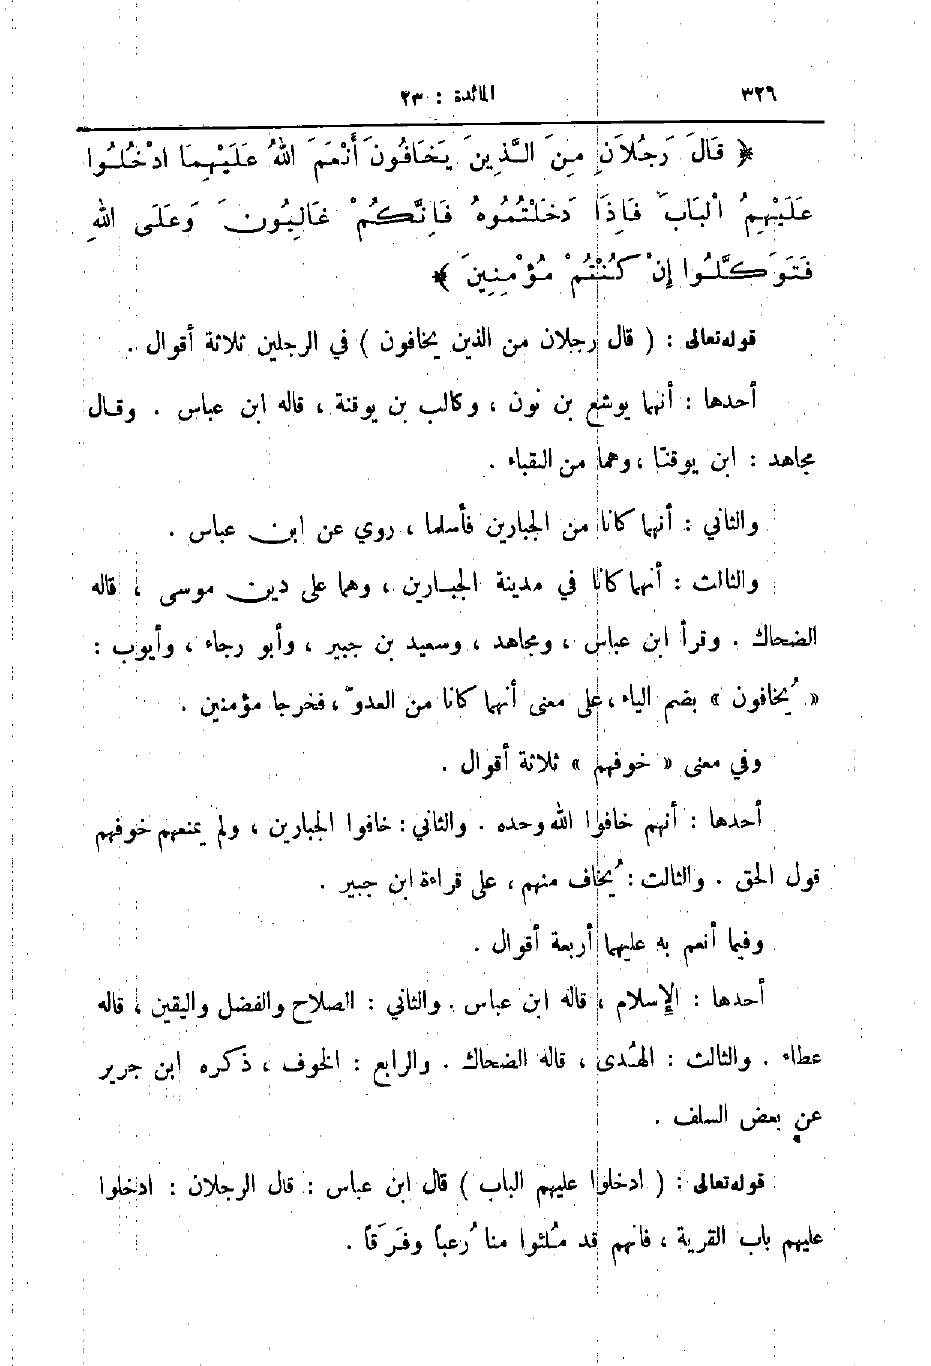 ٣٢٦ المائدة : ٢٣
﴿ قَالَ رَجُلَانِ مِنَ الَّذِينَ يَخَافُونَ أَنْعَمَ اللهُ عَلَيْهِمَا ادْخُلُوا
عَلَيْهِمُ الْبَابَ فَاِذَا دَخَلْتُمُوهُ فَاِنَّكُمْ غَالِبُونَ وَعَلَى اللهِ
فَتَوَكَّلُوا إِنْ كُنْتُمْ مُؤْمِنِينَ ﴾
قوله تعالى : ( قال رجلان من الذين يخافون ) في الرجلين ثلاثة أقوال .
أحدها : أنهما يوشع بن نون ، وكالب بن يوقنة ، قاله ابن عباس . وقال
مجاهد : ابن يوقنّا ، وهما من النقباء .
والثاني : أنهما كانا من الجبارين فأسلما ، روي عن ابن عباس .
والثالث : أنهما كانا في مدينة الجبارين ، وهما على دين موسى ، قاله
الضحاك . وقرأ ابن عباس ، ومجاهد ، وسعيد بن جبير ، وأبو رجاء ، وأيوب :
« يُخافون » بضم الياء ، على معنى أنهما كانا من العدوّ ، فخرجا مؤمنين .
وفي معنى « خوفهم » ثلاثة أقوال .
أحدها : أنهم خافوا الله وحده . والثاني : خافوا الجبارين ، ولم يمنعهم خوفهم
قول الحق . والثالث : يُخاف منهم ، على قراءة ابن جبير .
وفيما أنعم به عليهما أربعة أقوال .
أحدها : الإسلام ، قاله ابن عباس . والثاني : الصلاح والفضل واليقين ، قاله
عطاء . والثالث : الهُدى ، قاله الضحاك . والرابع : الخوف ، ذكره ابن جرير
عن بعض السلف .
قوله تعالى : ( ادخلوا عليهم الباب ) قال ابن عباس : قال الرجلان : ادخلوا
عليهم باب القرية ، فانهم قد مُلئوا منا رُعباً وفَرَقاً .